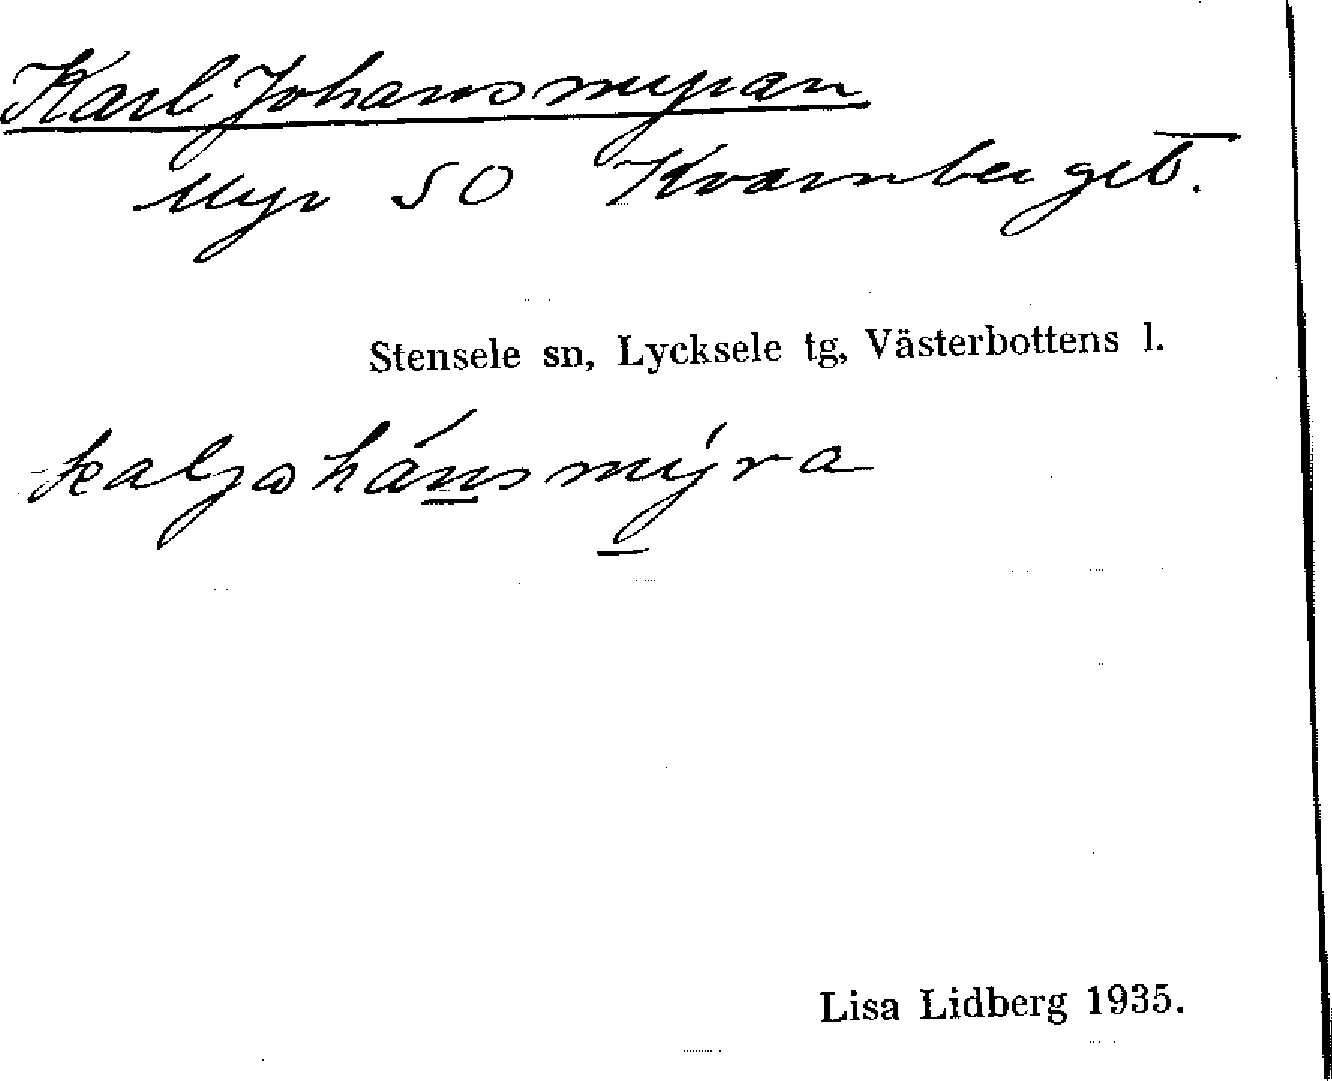 Karl Johansmyran
Myr SO Kvarnberget.
Stensele sn, Lycksele tg, Västerbottens l.
kaljohánsmýra
Lisa Lidberg 1935.